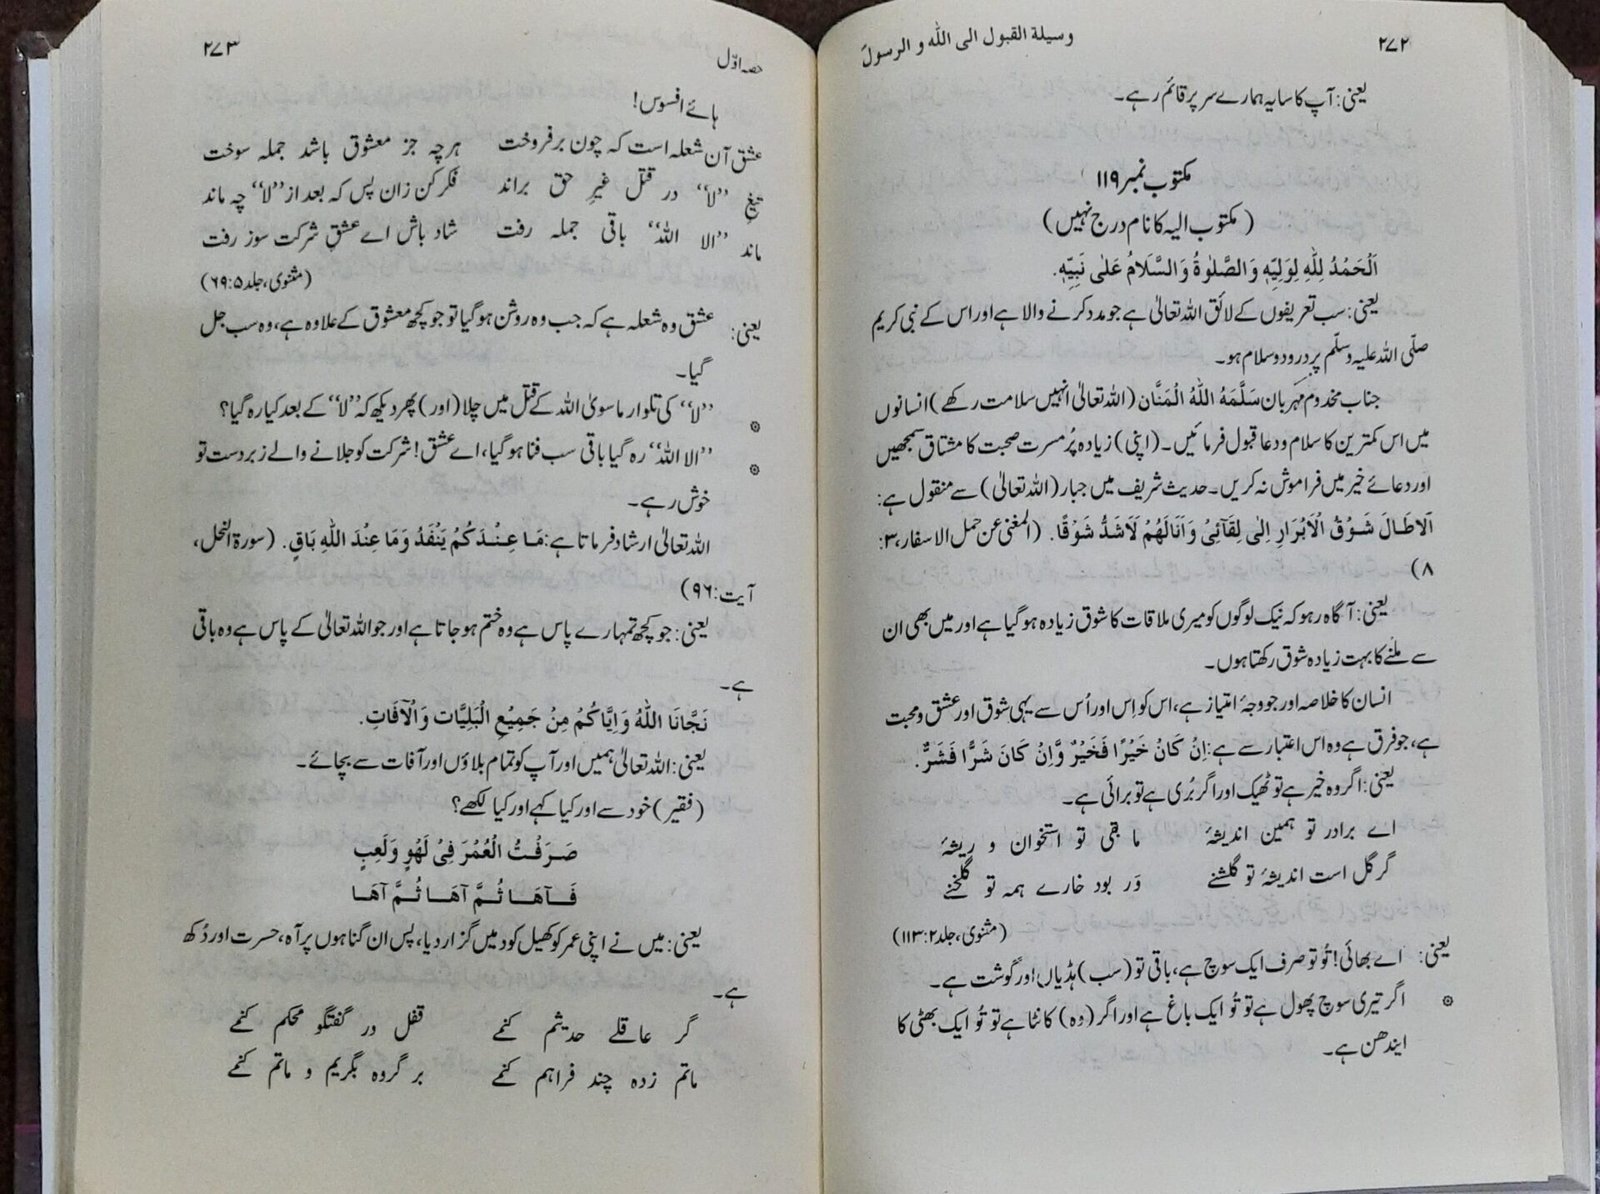 ۲۷۲
وسیلة القبول الی اللّٰه و الرسولؐ
یعنی: آپ کا سایہ ہمارے سر پر قائم رہے۔
مکتوب نمبر ۱۱۹
(مکتوب الیہ کا نام درج نہیں)
اَلْحَمْدُ لِلّٰهِ لِوَلِیِّهٖ وَالصَّلٰوةُ وَالسَّلَامُ عَلٰی نَبِیِّهٖ.
یعنی: سب تعریفوں کے لائق اللہ تعالیٰ ہے جو مدد کرنے والا ہے اور اس کے نبی کریم
صلّی اللہ علیہ وسلّم پر درود و سلام ہو۔
جناب مخدوم مہربان سَلَّمَهُ اللّٰهُ الْمَنَّان (اللہ تعالیٰ انہیں سلامت رکھے) انسانوں
میں اس کمترین کا سلام و دعا قبول فرمائیں۔ (اپنی) زیادہ پُر مسرت صحبت کا مشتاق سمجھیں
اور دعائے خیر میں فراموش نہ کریں۔ حدیث شریف میں جبار (اللہ تعالیٰ) سے منقول ہے:
اَلَاطَالَ شَوْقُ الْاَبْرَارِ اِلٰی لِقَآئِیْ وَاَنَالَهُمْ لَاَشَدُّ شَوْقًا. (المغنی عن حمل الاسفار، ۳:
۸)
یعنی: آگاہ رہو کہ نیک لوگوں کو میری ملاقات کا شوق زیادہ ہو گیا ہے اور میں بھی ان
سے ملنے کا بہت زیادہ شوق رکھتا ہوں۔
انسان کا خلاصہ اور جو وجۂ امتیاز ہے، اس کو اِس اور اُس سے یہی شوق اور عشق و محبت
ہے، جو فرق ہے وہ اس اعتبار سے ہے: اِنْ كَانَ خَیْرًا فَخَیْرٌ وَّاِنْ كَانَ شَرًّا فَشَرٌّ.
یعنی: اگر وہ خیر ہے تو ٹھیک اور اگر بُری ہے تو برائی ہے۔
اے برادر تو ہمین اندیشۂ ما بقی تو استخوان و ریشۂ
گر گل است اندیشۂ تو گلشنے وَر بود خارے ہمہ تو گلخنے
(مثنوی، جلد ۲: ۱۱۳)
یعنی: اے بھائی! تُو تو صرف ایک سوچ ہے، باقی تو (سب) ہڈیاں اور گوشت ہے۔
۞ اگر تیری سوچ پھول ہے تو تُو ایک باغ ہے اور اگر (وہ) کانٹا ہے تو تُو ایک بھٹی کا
ایندھن ہے۔
حصہ اوّل
۲۷۳
ہائے افسوس!
عشق آن شعلہ است کہ چون بر فروخت ہرچہ جز معشوق باشد جملہ سوخت
تیغِ ”لا“ در قتل غیرِ حق براند فکر کن زان پس کہ بعد از ”لا“ چہ ماند
ماند ”الا اللہ“ باقی جملہ رفت شاد باش اے عشقِ شرکت سوز رفت
(مثنوی، جلد ۵: ۶۹)
یعنی: عشق وہ شعلہ ہے کہ جب وہ روشن ہو گیا تو جو کچھ معشوق کے علاوہ ہے، وہ سب جل
گیا۔
۞ ”لا“ کی تلوار ماسویٰ اللہ کے قتل میں چلا (اور) پھر دیکھ کہ ”لا“ کے بعد کیا رہ گیا؟
۞ ”الا اللہ“ رہ گیا باقی سب فنا ہو گیا، اے عشق! شرکت کو جلانے والے زبردست تو
خوش رہے۔
اللہ تعالیٰ ارشاد فرماتا ہے: مَا عِنْدَكُمْ یَنْفَدُ وَمَا عِنْدَ اللّٰهِ بَاقٍ. (سورۃ النحل،
آیت: ۹۶)
یعنی: جو کچھ تمہارے پاس ہے وہ ختم ہو جاتا ہے اور جو اللہ تعالیٰ کے پاس ہے وہ باقی
ہے۔
نَجَّانَا اللّٰهُ وَاِیَّاكُمْ مِنْ جَمِیْعِ الْبَلِیَّاتِ وَالْاٰفَاتِ.
یعنی: اللہ تعالیٰ ہمیں اور آپ کو تمام بلاؤں اور آفات سے بچائے۔
(فقیر) خود سے اور کیا کہے اور کیا لکھے؟
صَرَفْتُ الْعُمْرَ فِیْ لَهْوٍ وَلَعِبٍ
فَآهَا ثُمَّ آهَا ثُمَّ آهَا
یعنی: میں نے اپنی عمر کو کھیل کود میں گزار دیا، پس ان گناہوں پر آہ، حسرت اور دُکھ
ہے۔
گر عاقلے حدیثم کنمے قفل در گفتگو محکم کنمے
ماتم زدہ چند فراہم کنمے بر گروہ بگریم و ماتم کنمے